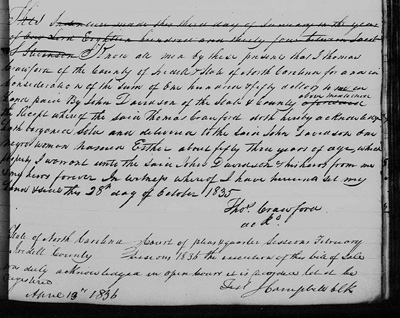 This Indenture made the third day of January in the year
of our Lord Eighteen hundred and thirty four between Jacob
of Know all men by these presents that I Thomas
Crawford of the County of Iredell & State of North Carolina for and in
Consideration of the Sum of One hundred & fifty dollars to me in
above mentioned
hand paid By John Davidson of the State & County aforesaid
the Receipt whereof the said Thomas Crawford doth hereby acknowledge
hath bargained sold and delivered to the said John Davidson one
negro woman named Esther about fifty three years of age, which
I warrant unto the said John Davidson & his heirs from me
my heirs forever In witness where of I have hereunto set my
hand & seal this 28th day of October 1835
Thos. Crawford
State of North Carolina Court of pleas & quarter Sessions February
Iredell County Sessions 1836 the execution of this bill of Sale
was duly acknowledged in open Court it is let it be
registered Test J Campbell clk
April 13th 1836